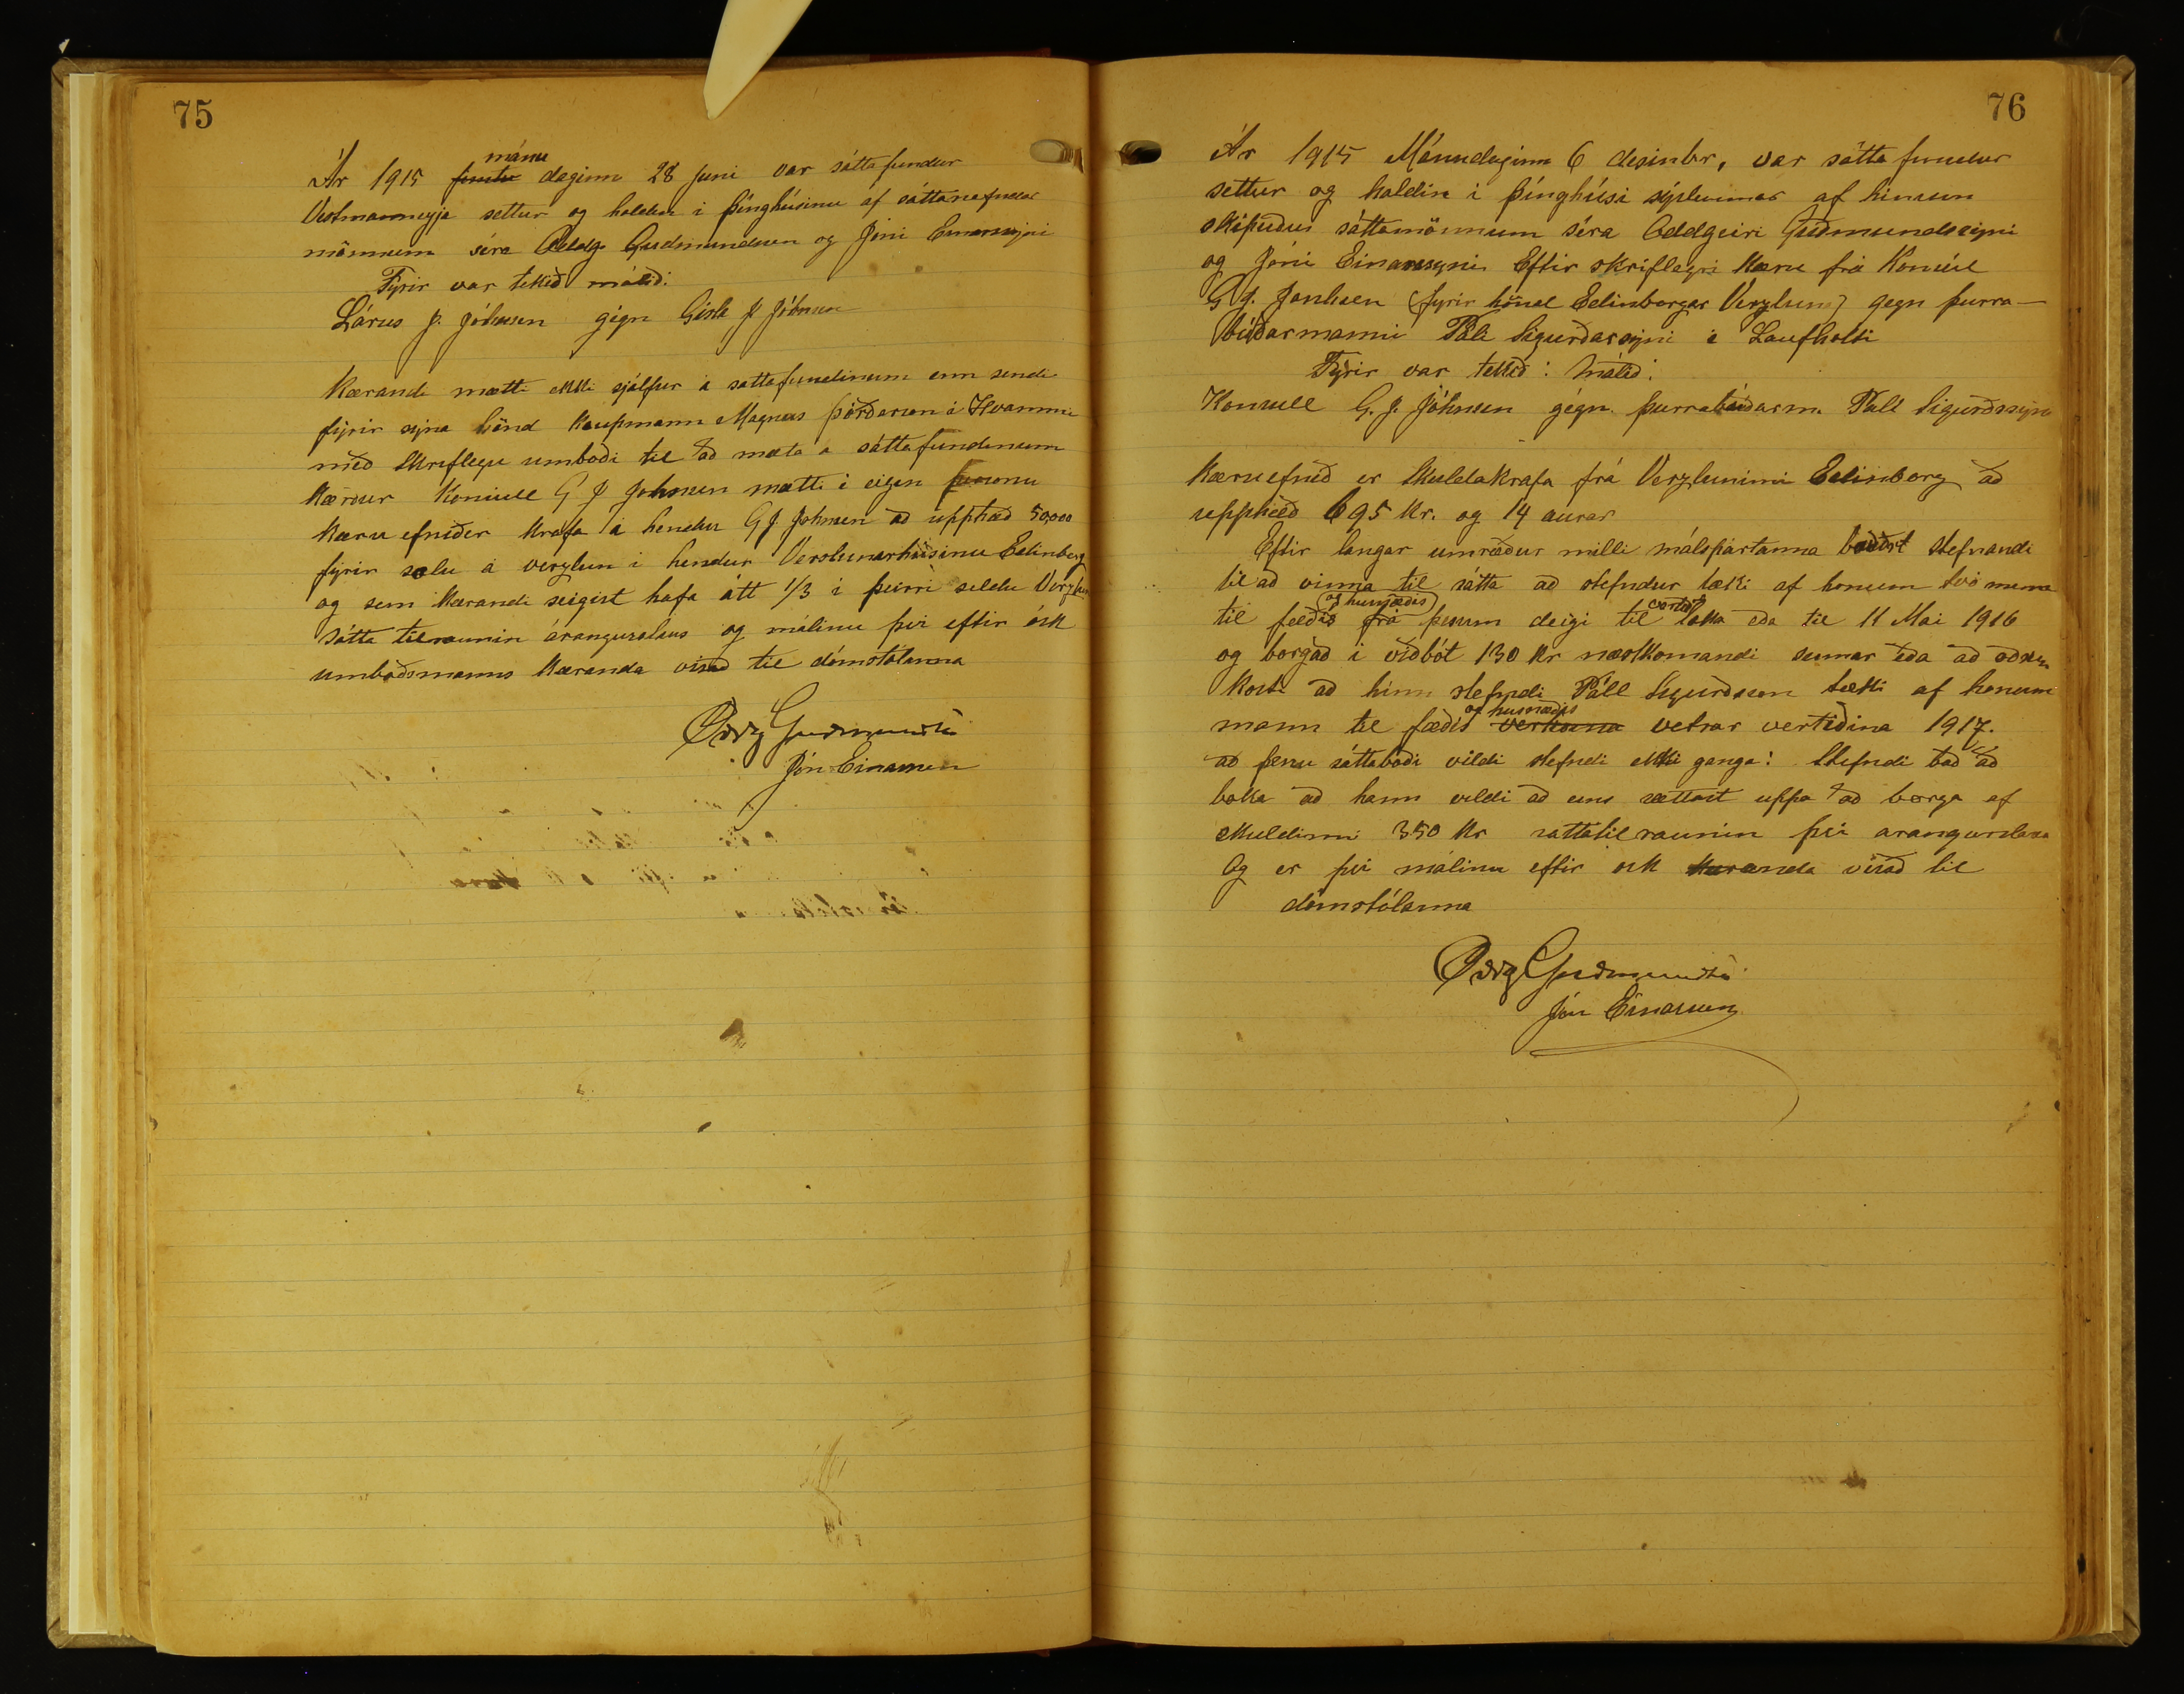 75
Ár 1915 mánu daginn 28 Juni var sáttafundur
Vestmanneyja settur og haldin i þinghúsinu af sáttanefndar
mönnum séra Oddg Gudmundsen og Jóni Einarssyni
Fyrir var tekið málið:
Lárus J. Johnsen gégn Gísla J Johnsen
Kærandi mætti ekki sjálfur á sattafundinum enn sendi
fyrir sýna hönd Kaupmann Magnus þórðarson á Hvammi
með skriflegu umboði til að mæta á sáttafundinum
Kærður Konsull G J Johnsen mætti i eigin personu
Kæru efnið er krafa á hendur G J. Johnsen að upphæð 50,000
fyrir sölu á verzlun i hendur Verslunarhúsinu Edinborg
og sem Kærandi seigist hafa átt 1/3 i þeirri seldu Verzlun
sátta tilraunin árangurslaus og málinu því eftir ósk
umboðsmanns Kæranda vísað til dómstólanna
Oddg Guðmundsen
Jón Einarsson
76
Ár 1915 Mánudaginn 6 desinbr, var sátta fundur
settur og haldin i þinghúsi sýslunnar af hinum
skipuðu sáttamönnum séra Oddgeiri Guðmundssyni
og Jóni Einarssyni Eftir skriflegri Kæru frá Konsúl
G J. Jonhsen (fyrir hönd Edinborgar Verzlun) gegn þurra-
búðarmanni Páli Sigurðarsyni i Laufholti
Fyrir var tekið: Málið:
Konsull G. J. Jóhnsen gégn þurrabúðarm. Páll Sigurðssyni
Kæruefnið er Skuldakrafa frá Verzluninni Edinborg að
upphæð 695 kr. og 14 aurar
Eftir langar umræður milli málspartanna bauðst stefnandi
til að vinna til sátta að stefndur tæki af honum tvo menn
til fæðis og husnæðis frá þessum deigi til vertið loka eda til 11 Mai 1916
og borgað i viðbót 130 Kr næstkomandi sumar eða að öðrum
kosti að hinn stefndi Páll Sigurðsson tækji af honum
mann til fæðis og husnæðis vetrar vertíðina 1917.
að þessu sáttaboði vildi stefndi ekki ganga: Stefndi bað að
boka að hann vildi að eins sættast uppa að borga af
skuldinni 350 Kr sattatilraunin því arangurslaus
Og er því málinu eftir osk Kæranda vísað til
dómstólanna
Oddg Guðmundsen
Jón Einarsson